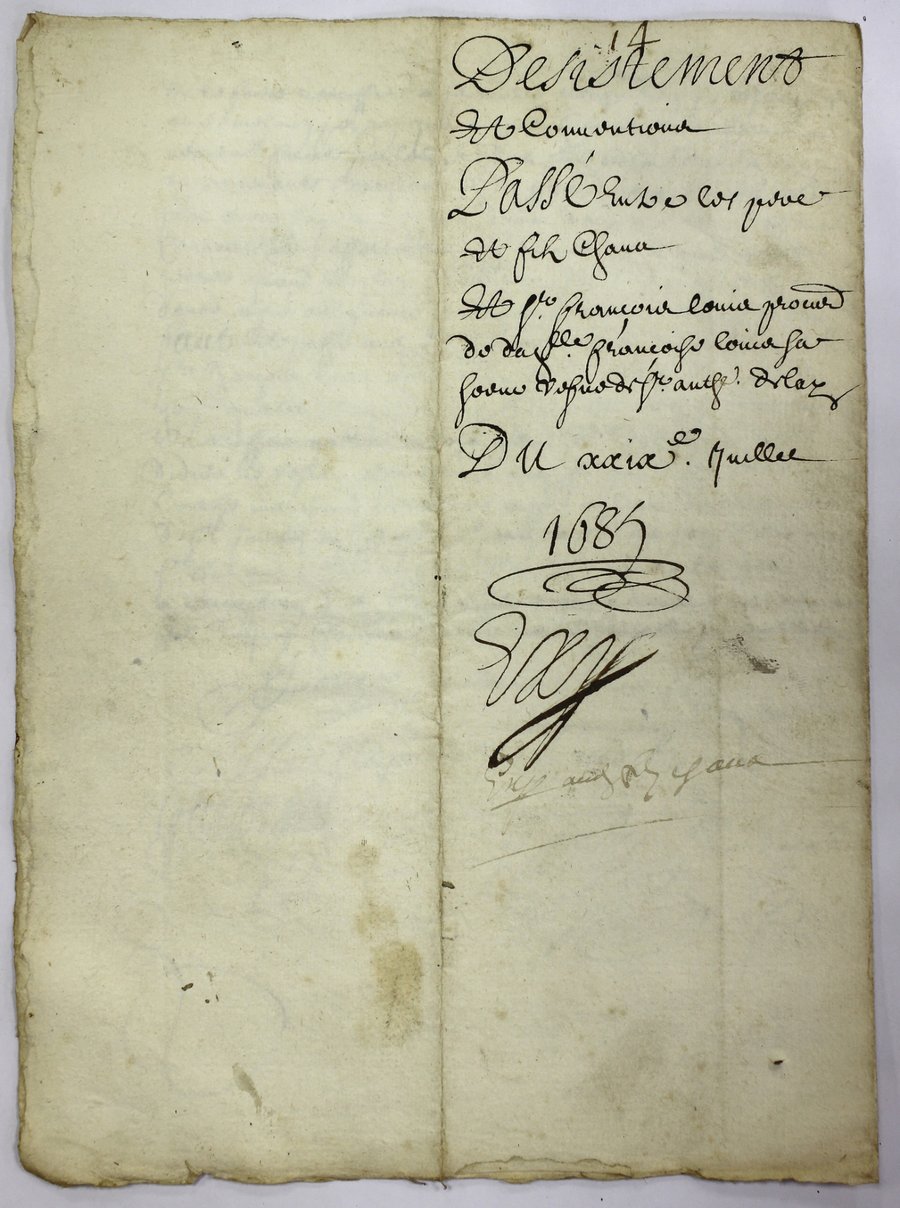 14
Desistement
Et Conventions
Passé Entre les pere
Et fils Chana
Et Sr. françois louis procur
de dalle. françoise louise sa
soeur vefve de Sr. anthe. delay
DU xxixe. Juillet
1685
chana